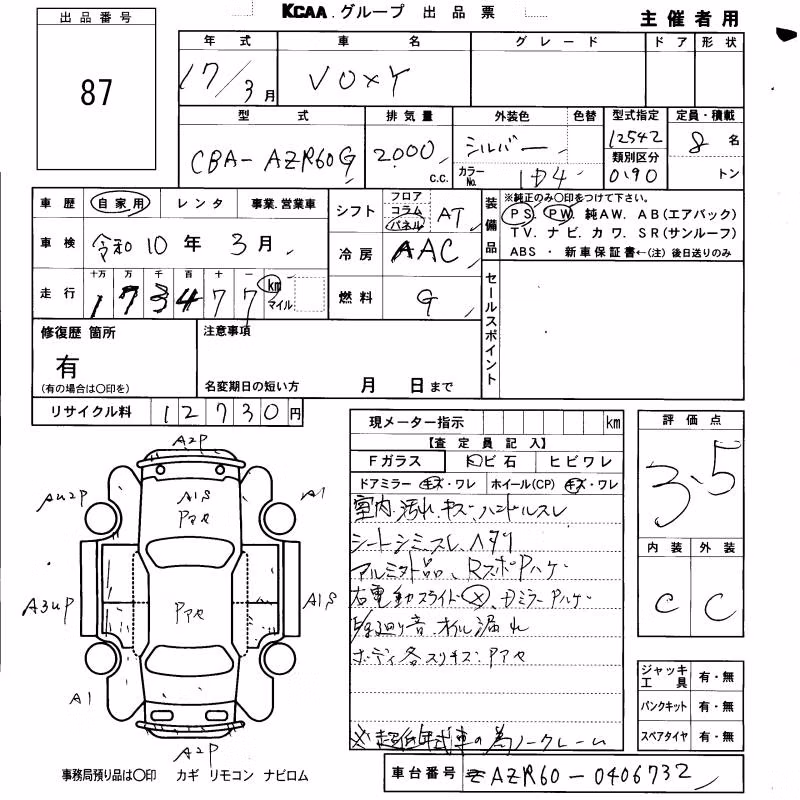 KCAA グループ 出品票
主催者用
出品番号
87
年式 車名 グレード ドア 形状
17/3月 VOXY
型式 排気量 外装色 色替 型式指定 定員・積載
CBA-AZR60G 2000 c.c. シルバー 12542 8名
カラーNo. 1D4 類別区分 0190 トン
車歴 自家用 レンタ 事業.営業車
車検 令和10年3月
走行 十万 万 千 百 十 一
173477 km マイル
シフト フロア コラム パネル AT
冷房 AAC
燃料 G
装備品 ※純正のみ〇印をつけて下さい。
PS. PW. 純AW. AB(エアバック)
TV. ナビ. カワ. SR(サンルーフ)
ABS ・ 新車保証書←(注) 後日送りのみ
セールスポイント
修復歴 箇所
有
(有の場合は〇印を)
注意事項
名変期日の短い方 月 日まで
リサイクル料 12730円
現メーター指示 km
【査定員記入】
Fガラス トビ石 ヒビワレ
ドアミラー キズ・ワレ ホイール(CP) キズ・ワレ
室内汚れ.キズ.ハンドルスレ
シートシミ.スレ.ヘタリ
アルミ社外品、Rスポハゲ
右電動スライド×、Dミラーハゲ
オイル漏れ
ボディ各スリキズ:P アセ
※超低年式車の為ノークレーム
評価点
3.5
内装 外装
C C
ジャッキ工具 有・無
パンクキット 有・無
スペアタイヤ 有・無
A2P
AU2P
A1S
Pアセ
A1
A3UP
Pアセ
A1S
A1
A2P
事務局預り品は〇印 カギ リモコン ナビロム
車台番号 AZR60-0406732